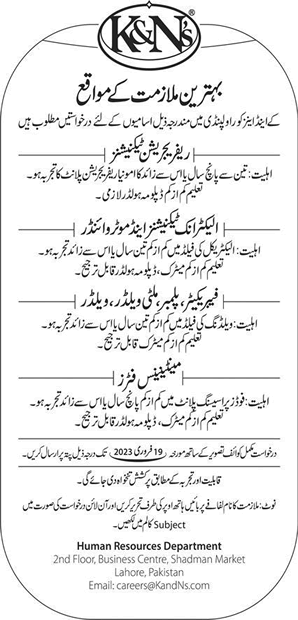 K&N's®
بہترین ملازمت کے مواقع
کے اینڈ اینز کو راولپنڈی میں مندرجہ ذیل اسامیوں کے لئے درخواستیں مطلوب ہیں
ریفریجریشن ٹیکنیشنز
اہلیت: تین سے پانچ سال یا اس سے زائد کا امونیا ریفریجریشن پلانٹ کا تجربہ ہو۔
تعلیم کم از کم ڈپلومہ ہولڈر لازمی۔
الیکٹرانک ٹیکنیشنز اینڈ موٹر وائنڈر
اہلیت: الیکٹریکل کی فیلڈ میں کم از کم تین سال یا اس سے زائد تجربہ ہو۔
تعلیم کم از کم میٹرک، ڈپلومہ ہولڈر قابل ترجیح۔
فیبریکیٹر، پلمبر، ملٹی ویلڈر، ویلڈر
اہلیت: ویلڈنگ کی فیلڈ میں کم از کم تین سال یا اس سے زائد تجربہ ہو۔
تعلیم کم از کم میٹرک قابل ترجیح۔
مینٹیننس فٹرز
اہلیت: فوڈز پراسیسنگ پلانٹ میں کم از کم پانچ سال یا اس سے زائد کا تجربہ ہو۔
تعلیم کم از کم میٹرک، ڈپلومہ ہولڈر قابل ترجیح۔
درخواست مکمل کوائف تصویر کے ساتھ مورخہ 19 فروری 2023 تک درجہ ذیل پتہ پر ارسال کریں۔
قابلیت اور تجربہ کے مطابق پرکشش تنخواہ دی جائے گی۔
نوٹ: ملازمت کا نام لفافے پر بائیں ہاتھ اوپر کی طرف تحریر کریں اور آن لائن درخواست کی صورت میں
Subject کالم میں لکھیں۔
Human Resources Department
2nd Floor, Business Centre, Shadman Market
Lahore, Pakistan
Email: careers@KandNs.com